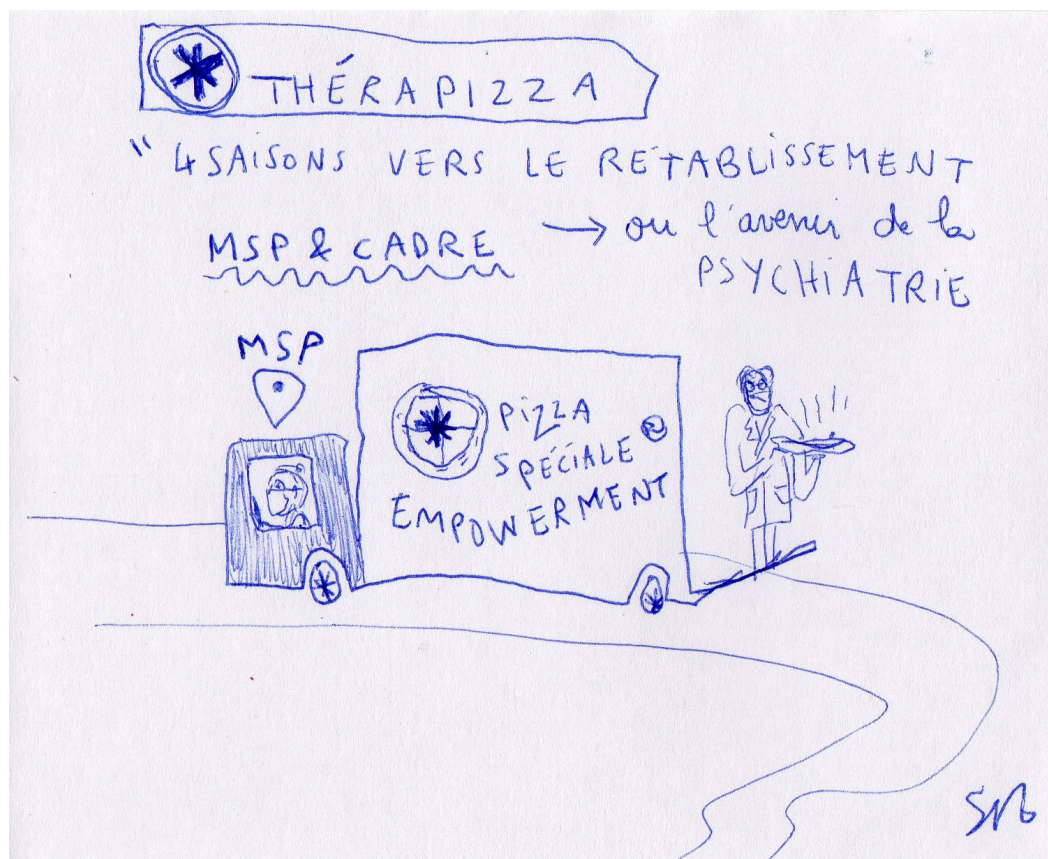 THÉRAPIZZA
" 4 SAISONS VERS LE RÉTABLISSEMENT
MSP & CADRE → ou l'avenir de la
PSYCHIATRIE
MSP
PIZZA
SPÉCIALE
EMPOWERMENT